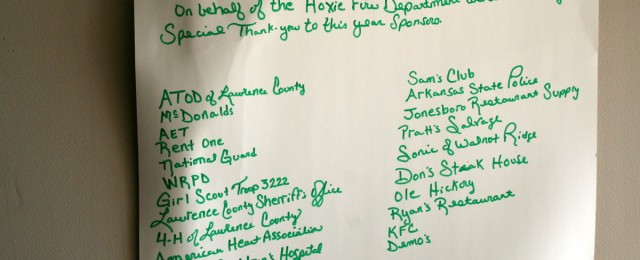 On behalf of the Hoxie Fire Department
Special Thank-you to this year Sponsors.
ATOD of Lawrence County
McDonalds
AET
Rent One
National Guard
WRPD
Girl Scout Troop 3222
Lawrence County Sherriff's Office
4-H of Lawrence County
American Heart Association
Hospital
Sam's Club
Arkansas State Police
Jonesboro Restaurant Supply
Pratt's Salvage
Sonic of Walnot Ridge
Don's Steak House
Ole Hickory
Ryan's Restaurant
KFC
Demo's